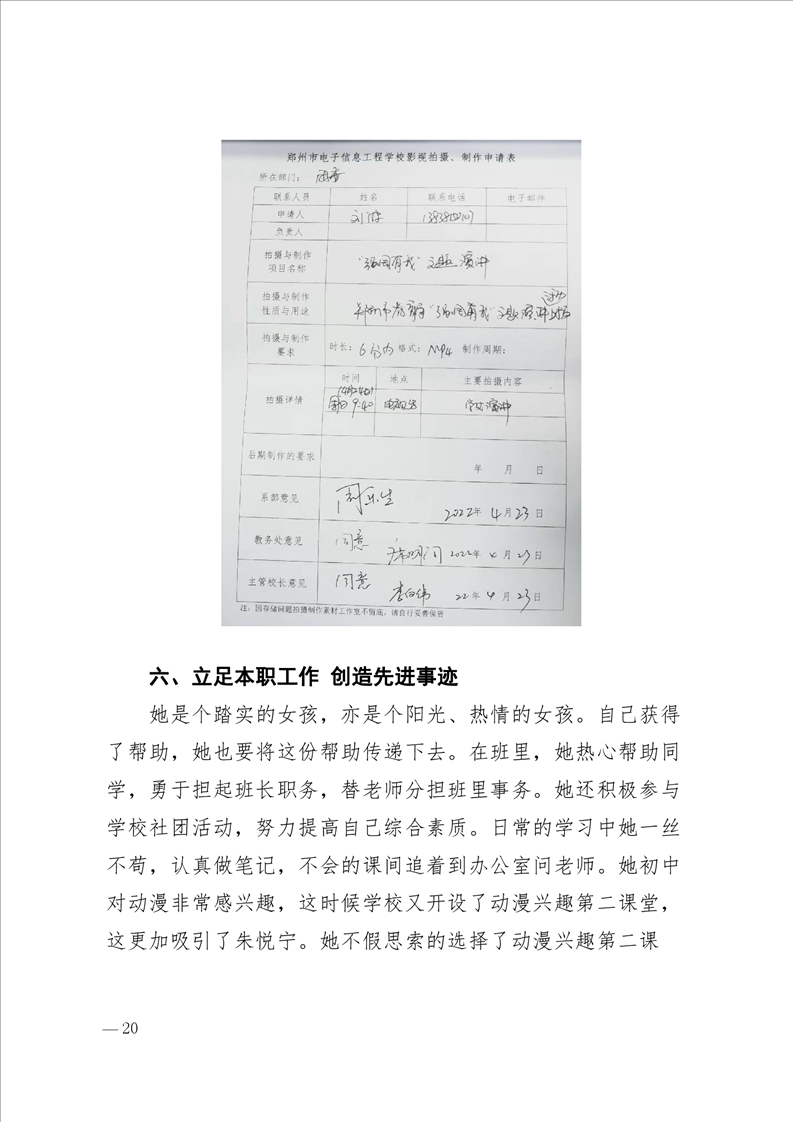 郑州市电子信息工程学校影视拍摄、制作申请表
所在部门：
联系人员 姓名 联系电话 电子邮件
申请人
负责人
拍摄与制作
项目名称
"强国有我"主题演讲
拍摄与制作
性质与用途
郑州市 "强国有我"主题演讲
拍摄与制作
要求
时长：6分内 格式：MP4 制作周期：
时间 地点 主要拍摄内容
拍摄详情
9:40 学生演讲
后期制作的要求
年 月 日
系部意见
2022年4月23日
教务处意见 同意
2022年4月23日
主管校长意见 同意
22年4月23日
注：因存储问题拍摄制作素材工作室不留底，请自行妥善保管
六、立足本职工作 创造先进事迹
她是个踏实的女孩，亦是个阳光、热情的女孩。自己获得
了帮助，她也要将这份帮助传递下去。在班里，她热心帮助同
学，勇于担起班长职务，替老师分担班里事务。她还积极参与
学校社团活动，努力提高自己综合素质。日常的学习中她一丝
不苟，认真做笔记，不会的课间追着到办公室问老师。她初中
对动漫非常感兴趣，这时候学校又开设了动漫兴趣第二课堂，
这更加吸引了朱悦宁。她不假思索的选择了动漫兴趣第二课
— 20